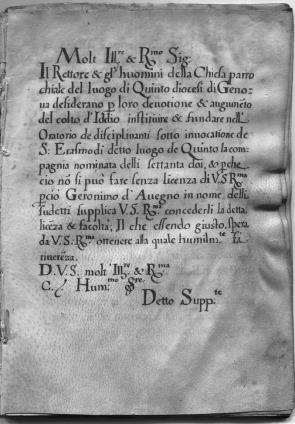 Molt Ill.re & R.mo Sig:
Il Rettore & gl'huomini della Chiesa parro
chiale del luogo di Quinto diocesi di Geno-
ua desiderano p loro deuotione & augumẽto
del colto d'Iddio instituire & fundare nell'
Oratorio de disciplinanti sotto inuocatione de
S: Erasmo di detto luogo de Quinto la com-
pagnia nominata delli settanta doi, & pche
cio nõ si può fare senza licenza di V.S R.ma
pciò Geronimo d'Auegno in nome delli
sudetti supplica V.S. R.ma concederli la detta
licẽza & facoltà; Il che essendo giusto, spera
da V.S R.ma ottenere alla quale humilm.te
D. V. S. molt'Ill.re & R.ma
Hum.mo S.re
Detto Supp.te